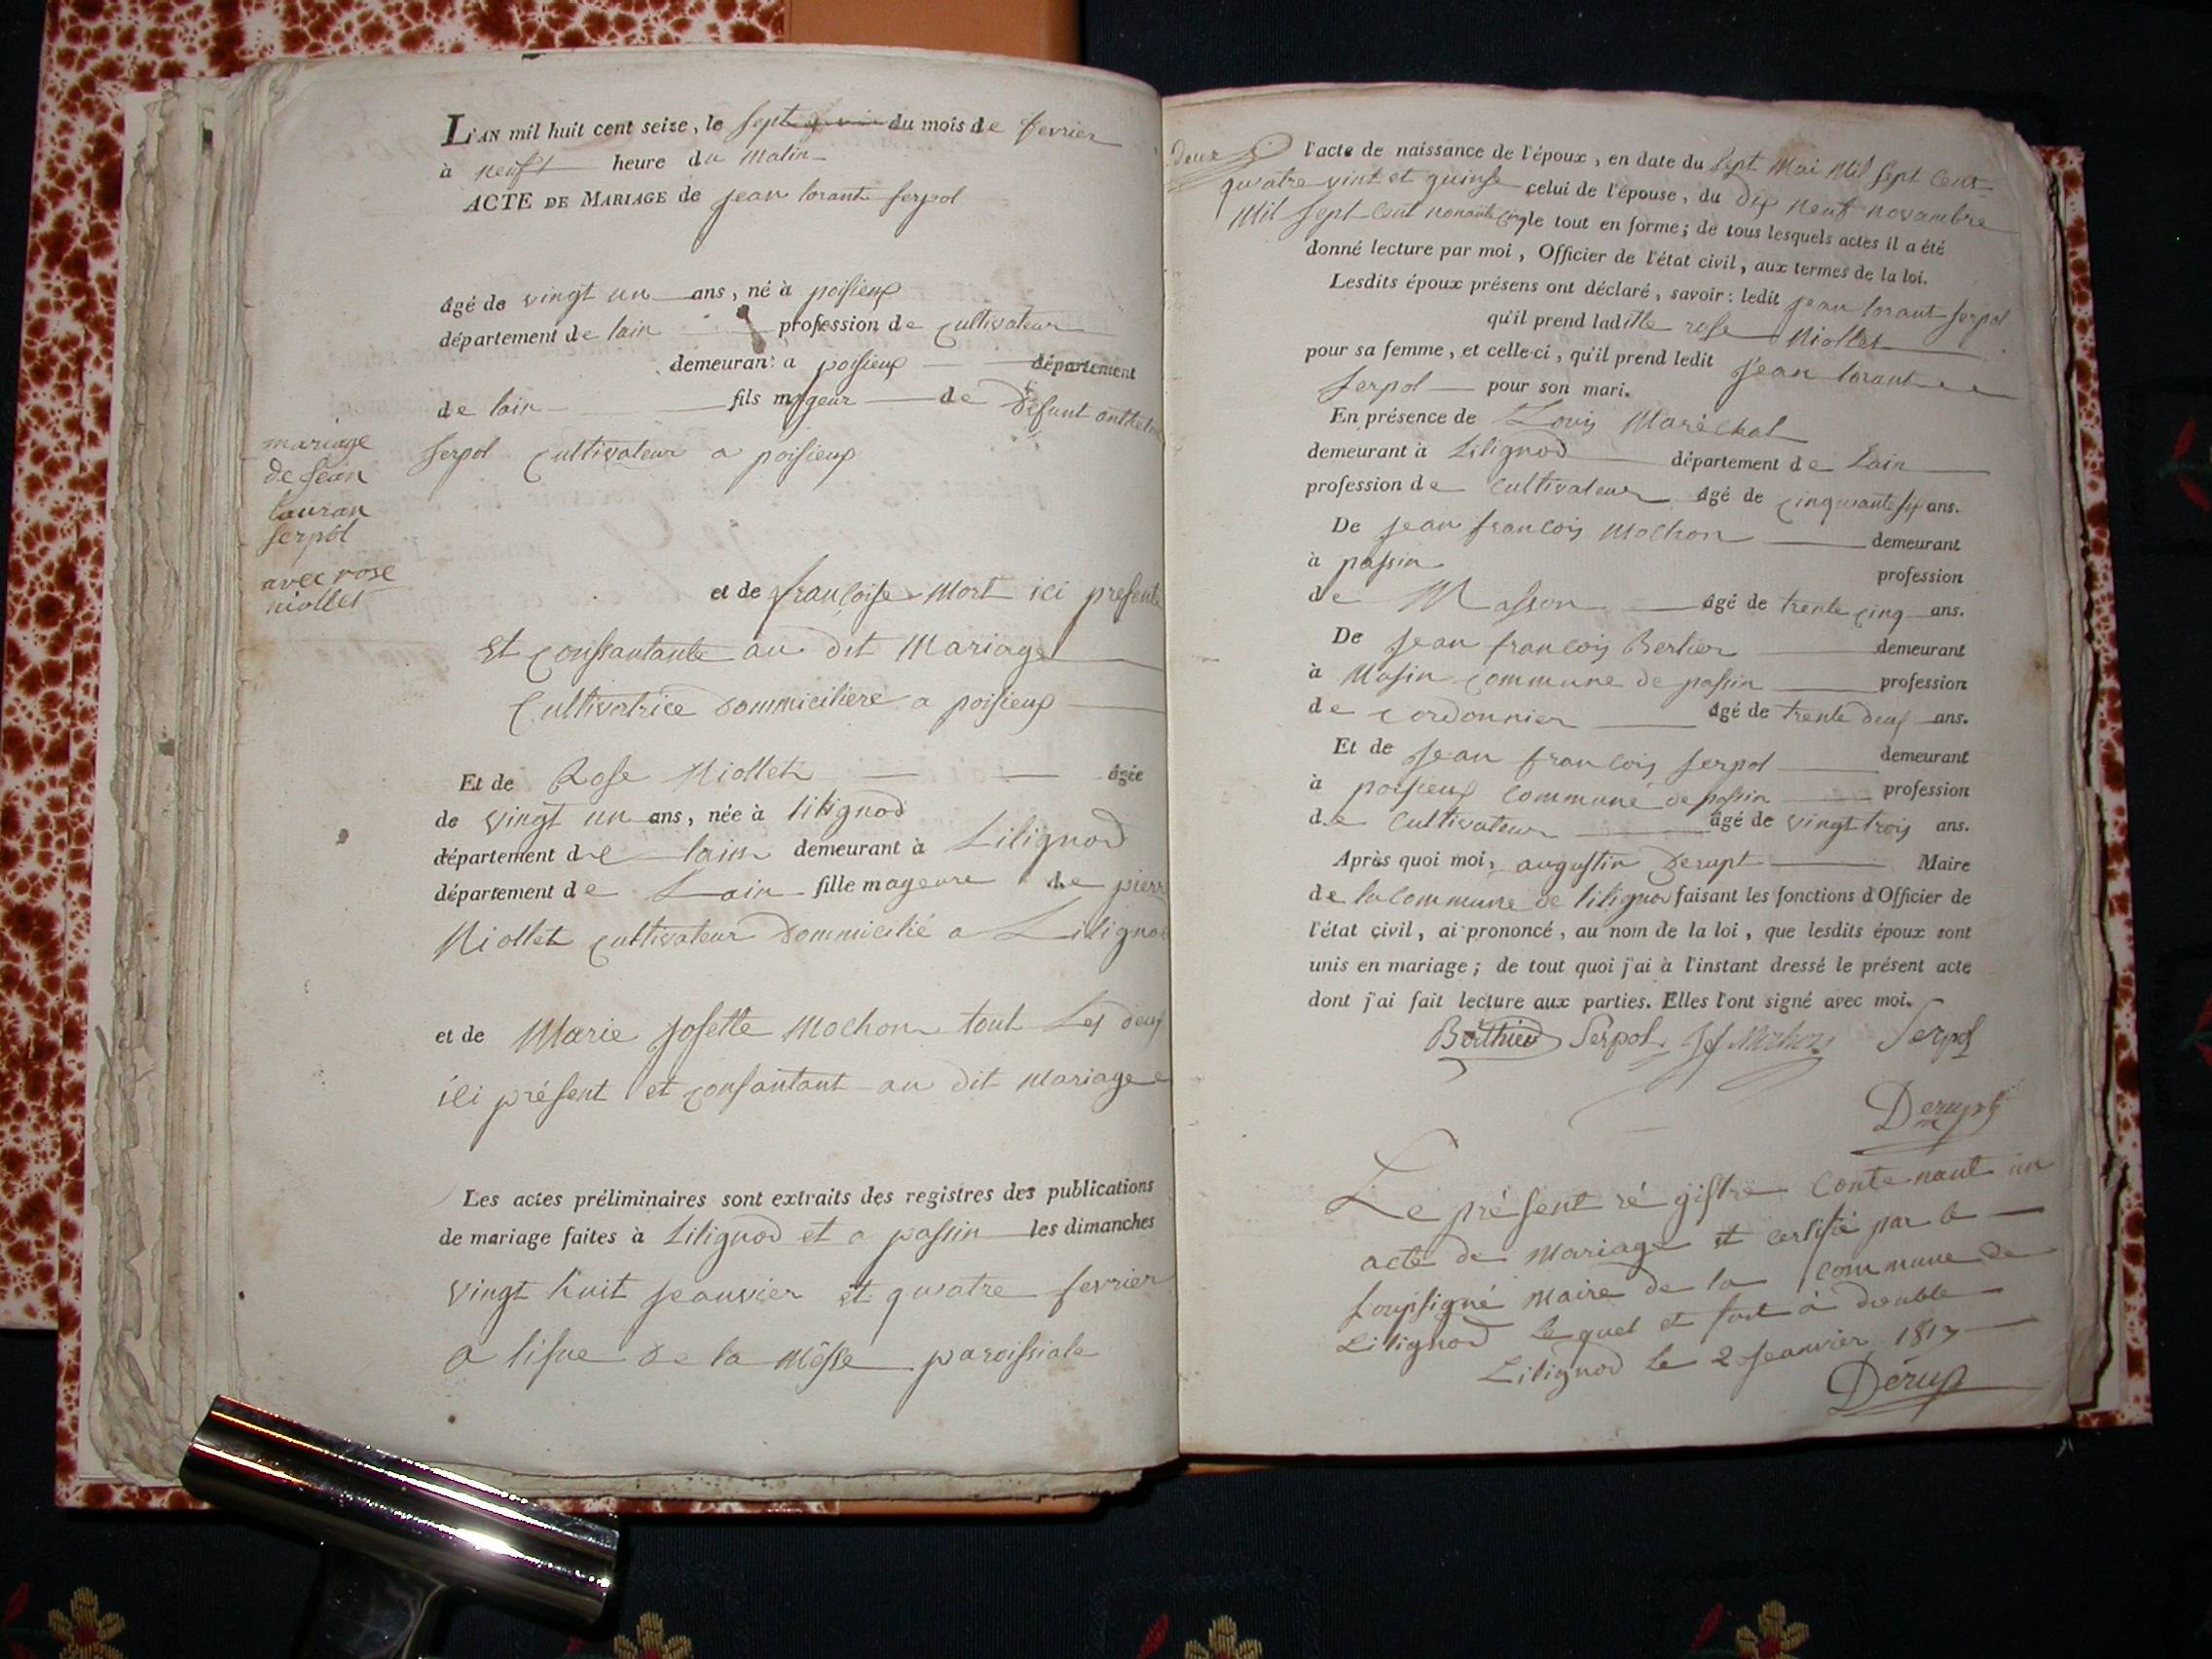 L'AN mil huit cent seize, le sept du mois de fevrier
à neuft heure du Matin
ACTE DE MARIAGE de jean lorant serpol
âgé de vingt un ans, né à poisieux
département de lain profession de cultivateur
demeurant a poisieux département
de lain fils mageur de défunt anthelme
serpol cultivateur a poisieux
mariage
de jean
lauran
serpol
avec rose
niollet
et de françoise Mort ici presente
et consantante au dit Mariage
Cultivatrice dommiciliere a poisieux
Et de Rose Niollet âgée
de vingt un ans, née à lilignod
département de lain demeurant à Lilignod
département de Lain fille mageure de pierre
Niollet cultivateur dommicilié a Lilignod
et de Marie josette Mochon tout Les deux
ici présent et consantant au dit mariage
Les actes préliminaires sont extraits des registres des publications
de mariage faites à Lilignod et a passin les dimanches
vingt huit jeanvier et quatre fevrier
a lisue de la Mèsse paroissiale
deux
l'acte de naissance de l'époux, en date du sept Mai Mil sept Cent
quatre vint et quinse celui de l'épouse, du dix neuf novambre
Mil sept Cent nonante cinq le tout en forme; de tous lesquels actes il a été
donné lecture par moi, Officier de l'état civil, aux termes de la loi.
Lesdits époux présens ont déclaré, savoir: ledit jean lorant serpol
qu'il prend laditte rose Niollet
pour sa femme, et celle-ci, qu'il prend ledit jean lorant
serpol pour son mari.
En présence de Louis Maréchal
demeurant à Lilignod département de Lain
profession de Cultivateur âgé de cinquante six ans.
De jean francois Mochon demeurant
à passin profession
de Masson âgé de trente cinq ans.
De jean francois Bertier demeurant
à Masin commune de passin profession
de cordonnier âgé de trente deux ans.
Et de jean francois serpol demeurant
à poisieux commune de passin profession
de Cultivateur âgé de vingt trois ans.
Après quoi moi, augustin Derupt Maire
de la Commune de lilignod faisant les fonctions d'Officier de
l'état civil, ai prononcé, au nom de la loi, que lesdits époux sont
unis en mariage; de tout quoi j'ai à l'instant dressé le présent acte
dont j'ai fait lecture aux parties. Elles l'ont signé avec moi.
Berthier Serpol jf Mochon Serpol
Derupt
Le présent régistre Contenant un
acte de Mariage et certifié par le
soussigné Maire de la Commune de
Lilignod Le quel et fait à double
Lilignod Le 2 jeanvier 1817
Dérupt